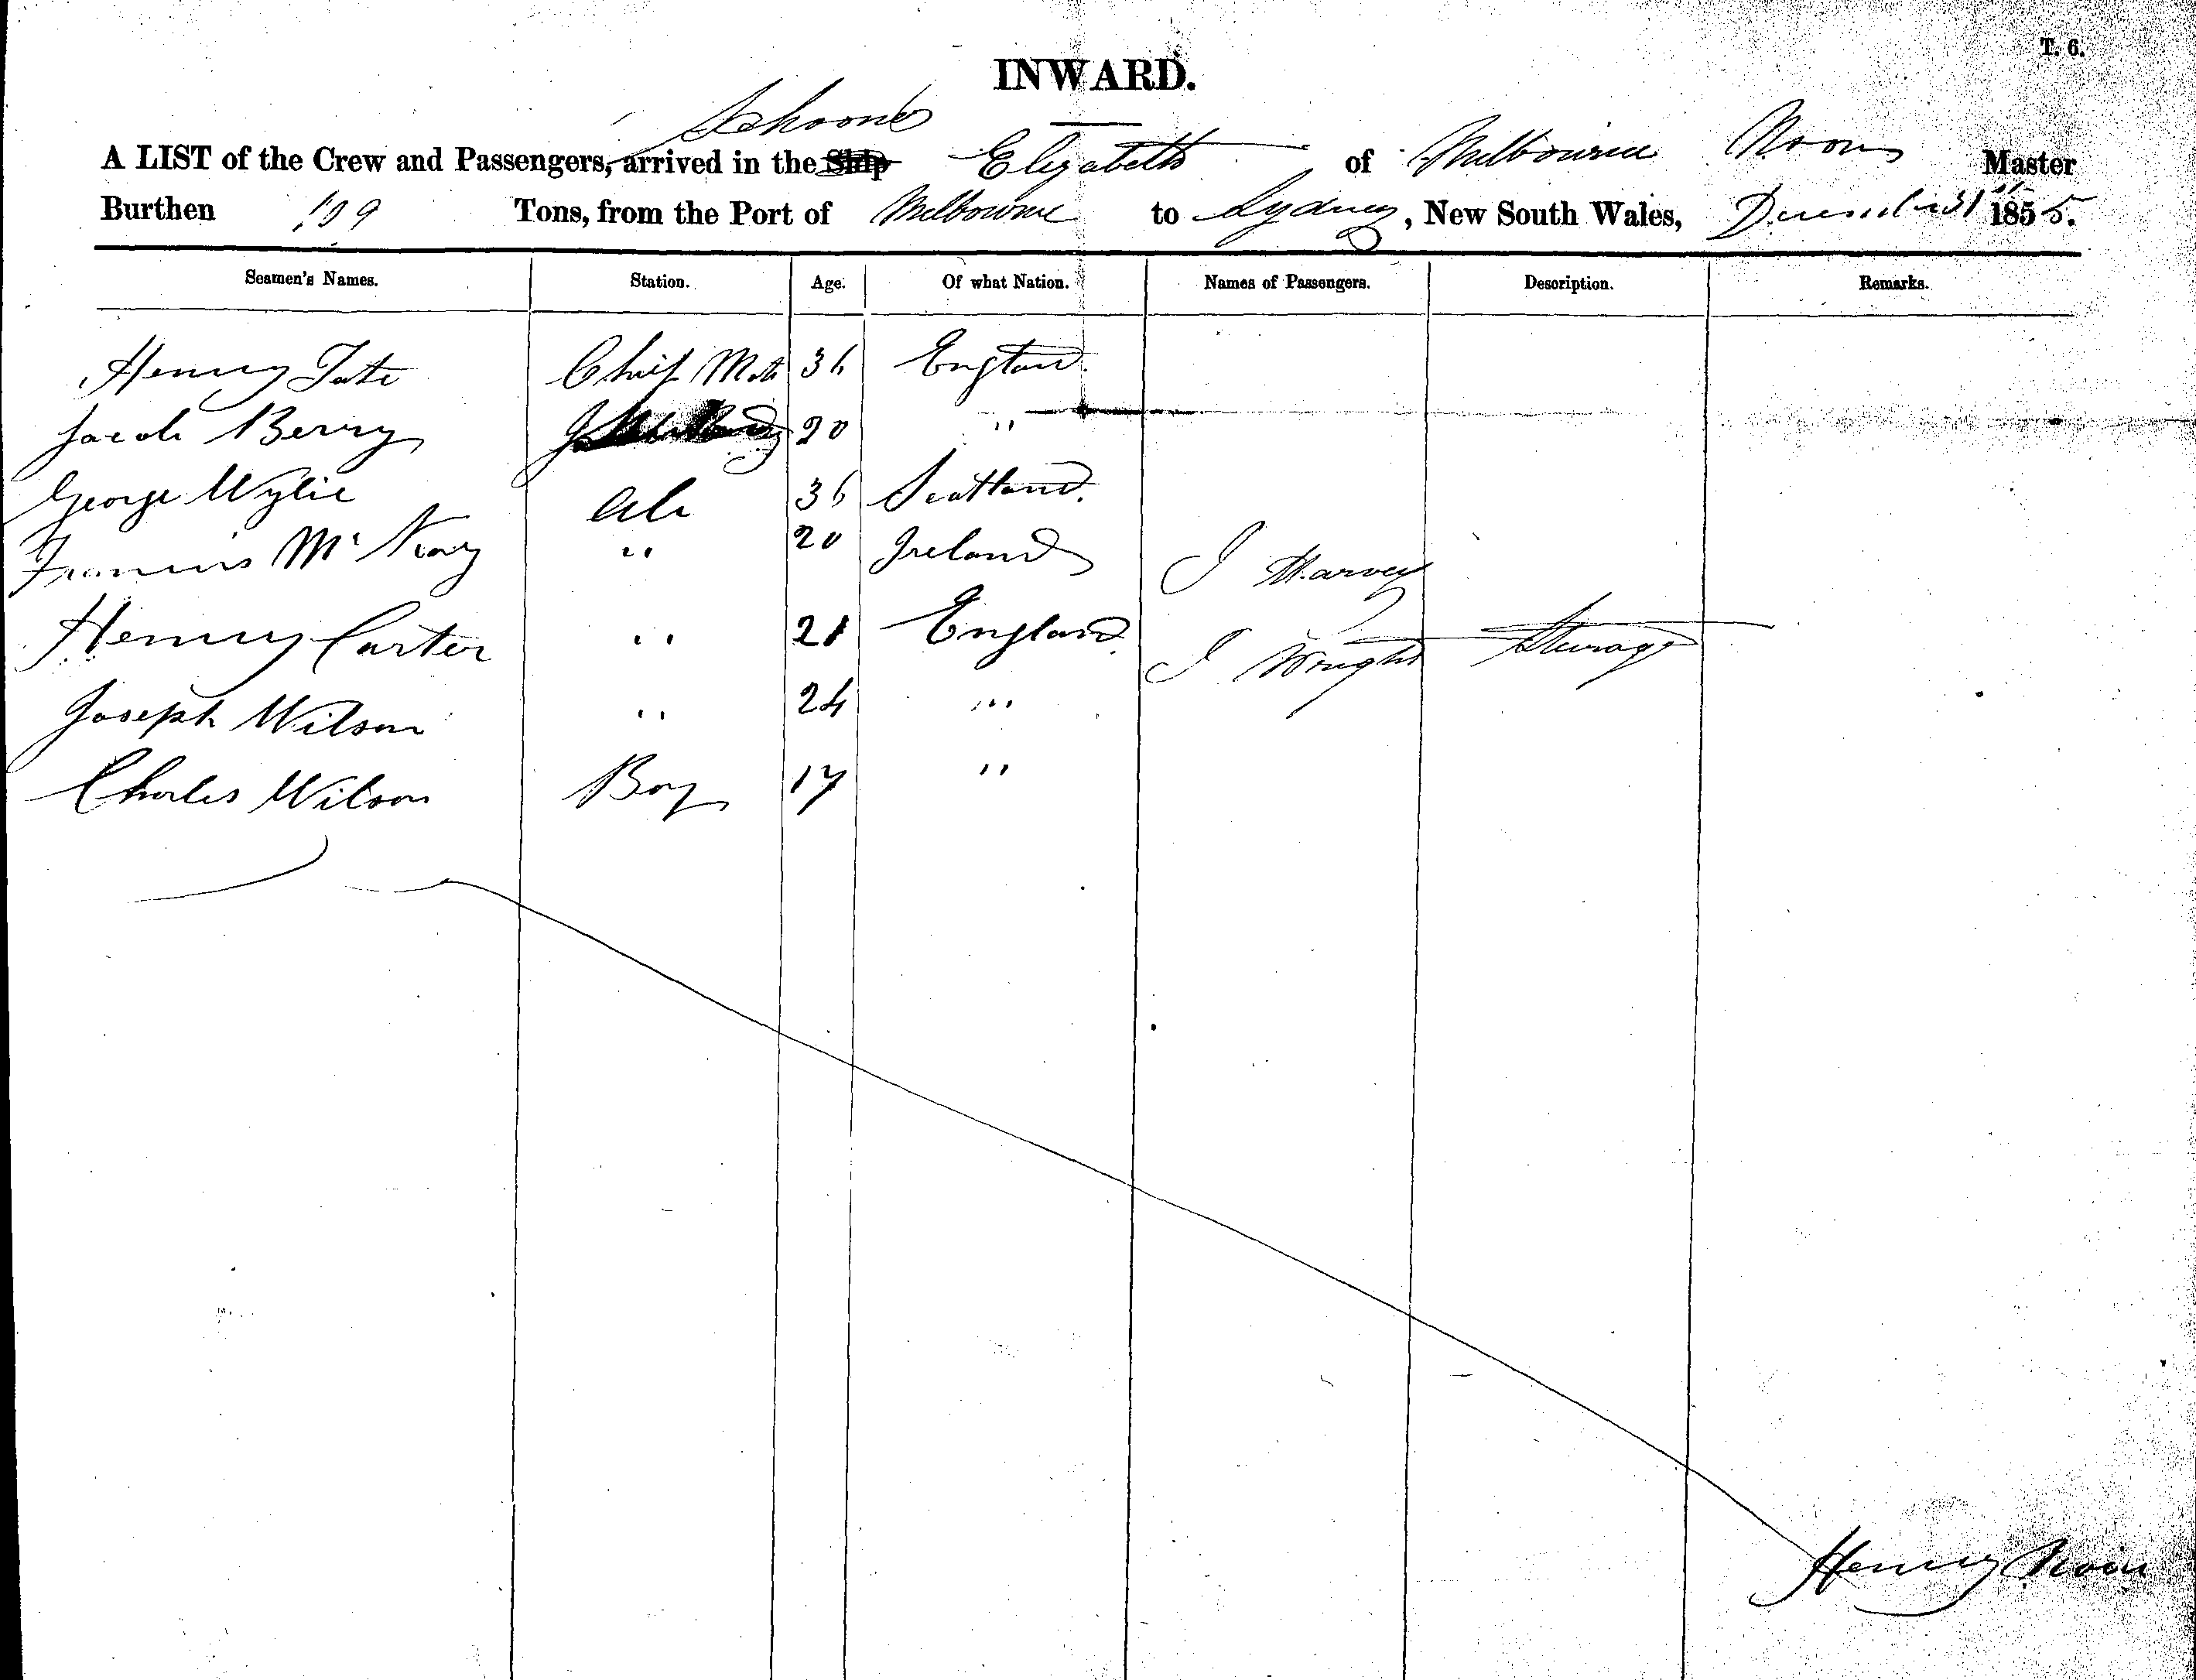 T. 6.
INWARD.
Schooner
A LIST of the Crew and Passengers, arrived in the Ship Elizabeth of Melbourne Noon Master
Burthen 199 Tons, from the Port of Melbourne to Sydney, New South Wales, December 31 1855.
Seamen's Names. Station. Age. Of what Nation. Names of Passengers. Description. Remarks.
Henry Tate Chief Mate 36 England
Jacob Berry 20 "
George Wylie Ab 36 Scotland.
Francis Mc " 20 Ireland J Harvey
Henry Carter " 21 England J Wright Steerage
Joseph Wilson " 24 "
Charles Wilson Boy 17 "
Henry Noon